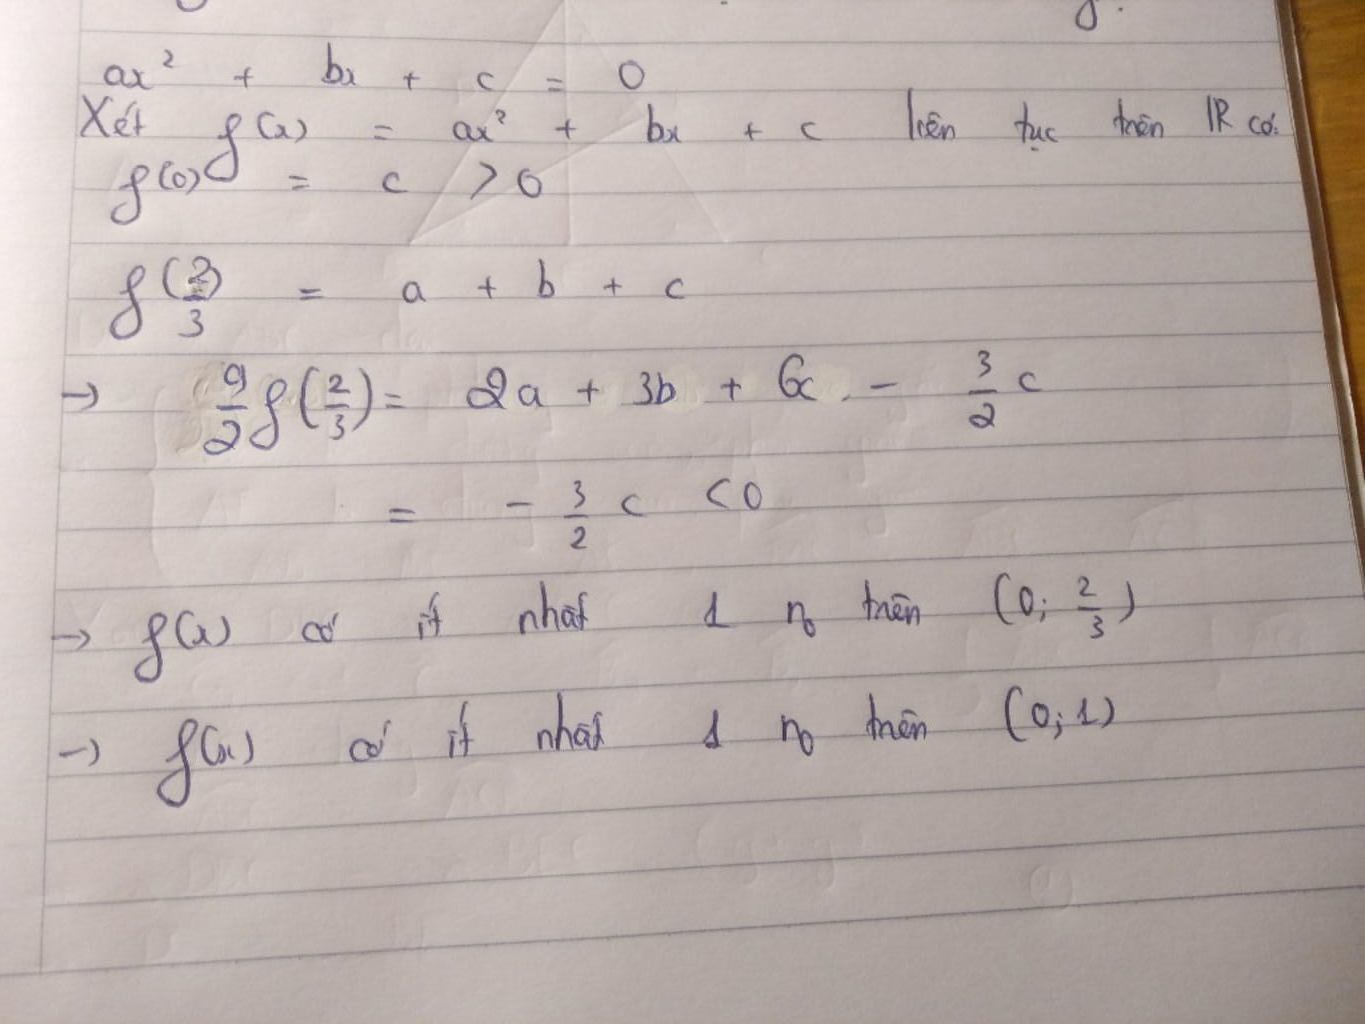 ax² + bx + c = 0
Xét f(x) = ax² + bx + c liên tục trên IR có:
f(0) = c > 0
f(2/3) = a + b + c
→ 9/2 f(2/3) = 2a + 3b + 6c - 3/2 c
= - 3/2 c < 0
→ f(x) có ít nhất 1 n₀ trên (0; 2/3)
→ f(x) có ít nhất 1 n₀ trên (0;1)